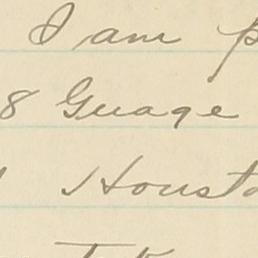 I am p
8 Guage
Housto